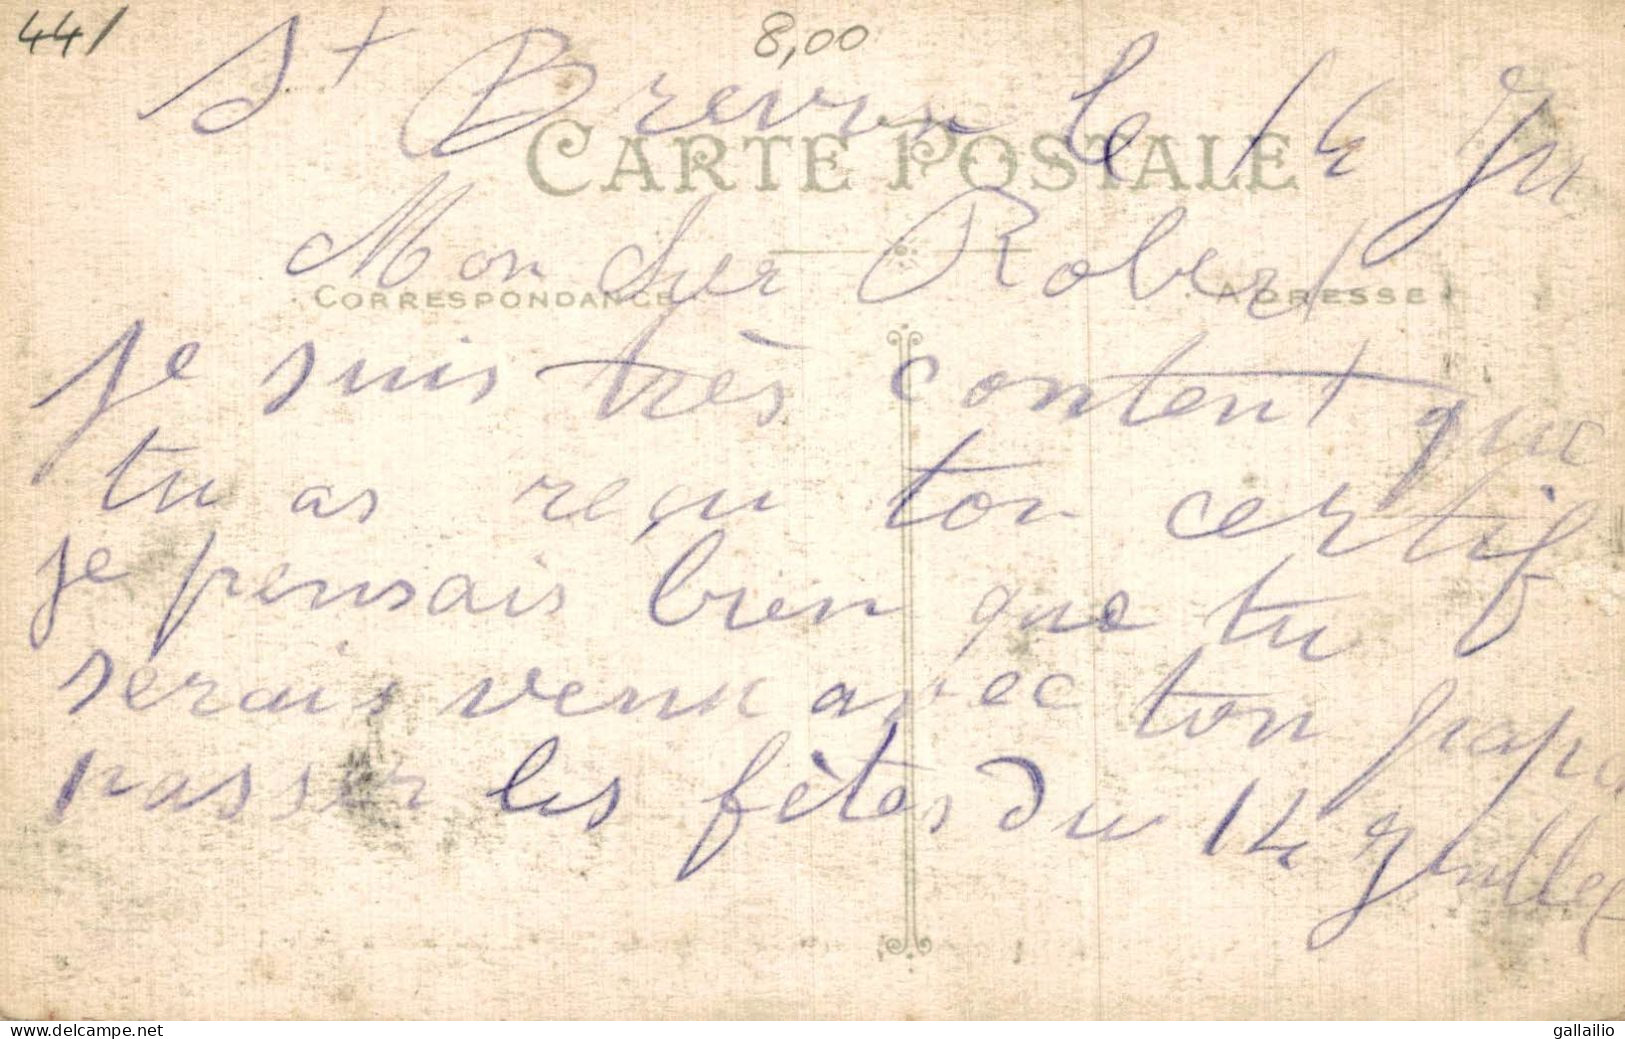 44/
8,00
St Brevin le 14 Ju
CARTE POSTALE
Mon cher Robert
CORRESPONDANCE
ADRESSE
Je suis très content que
tu as reçu ton certif
je pensais bien que tu
serais venu avec ton papa
passer les fêtes du 14 Juillet
www.delcampe.net
gallailio